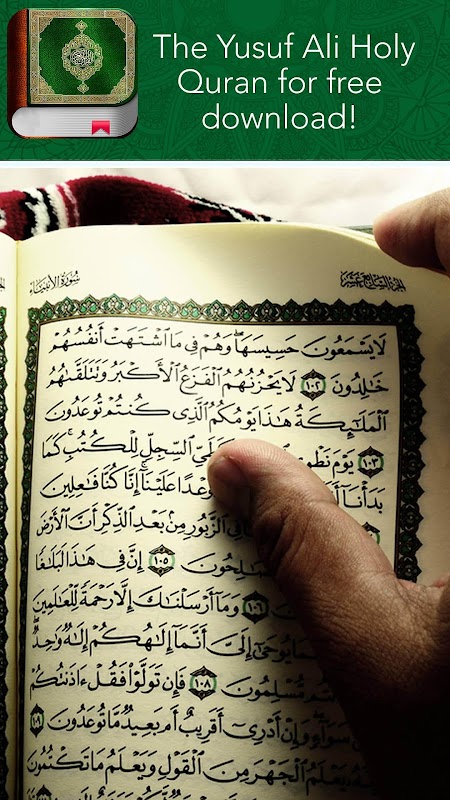 The Yusuf Ali Holy
Quran for free
download!
سُورَةُ الأَنبِيَاءِ
الجُزْءُ السَّابِعَ عَشَرَ
لَا يَسْمَعُونَ حَسِيسَهَا وَهُمْ فِي مَا اشْتَهَتْ أَنفُسُهُمْ
خَالِدُونَ ١٠٢ لَا يَحْزُنُهُمُ الْفَزَعُ الْأَكْبَرُ وَتَتَلَقَّاهُمُ
الْمَلَائِكَةُ هَذَا يَوْمُكُمُ الَّذِي كُنتُمْ تُوعَدُونَ
١٠٣ يَوْمَ نَطْوِي السِّجِلِّ لِلْكُتُبِ كَمَا
بَدَأْنَا وَعْدًا عَلَيْنَا إِنَّا كُنَّا فَاعِلِينَ
فِي الزَّبُورِ مِنْ بَعْدِ الذِّكْرِ أَنَّ الْأَرْضَ
الصَّالِحُونَ ١٠٥ إِنَّ فِي هَذَا لَبَلَاغًا
١٠٦ وَمَا أَرْسَلْنَاكَ إِلَّا رَحْمَةً لِّلْعَالَمِينَ
يُوحَى إِلَيَّ أَنَّمَا إِلَهُكُمْ إِلَهٌ وَاحِدٌ
مُّسْلِمُونَ ١٠٨ فَإِن تَوَلَّوْا فَقُلْ آذَنتُكُمْ
سَوَاءٍ وَإِنْ أَدْرِي أَقَرِيبٌ أَم بَعِيدٌ مَّا تُوعَدُونَ ١٠٩
يَعْلَمُ الْجَهْرَ مِنَ الْقَوْلِ وَيَعْلَمُ مَا تَكْتُمُونَ